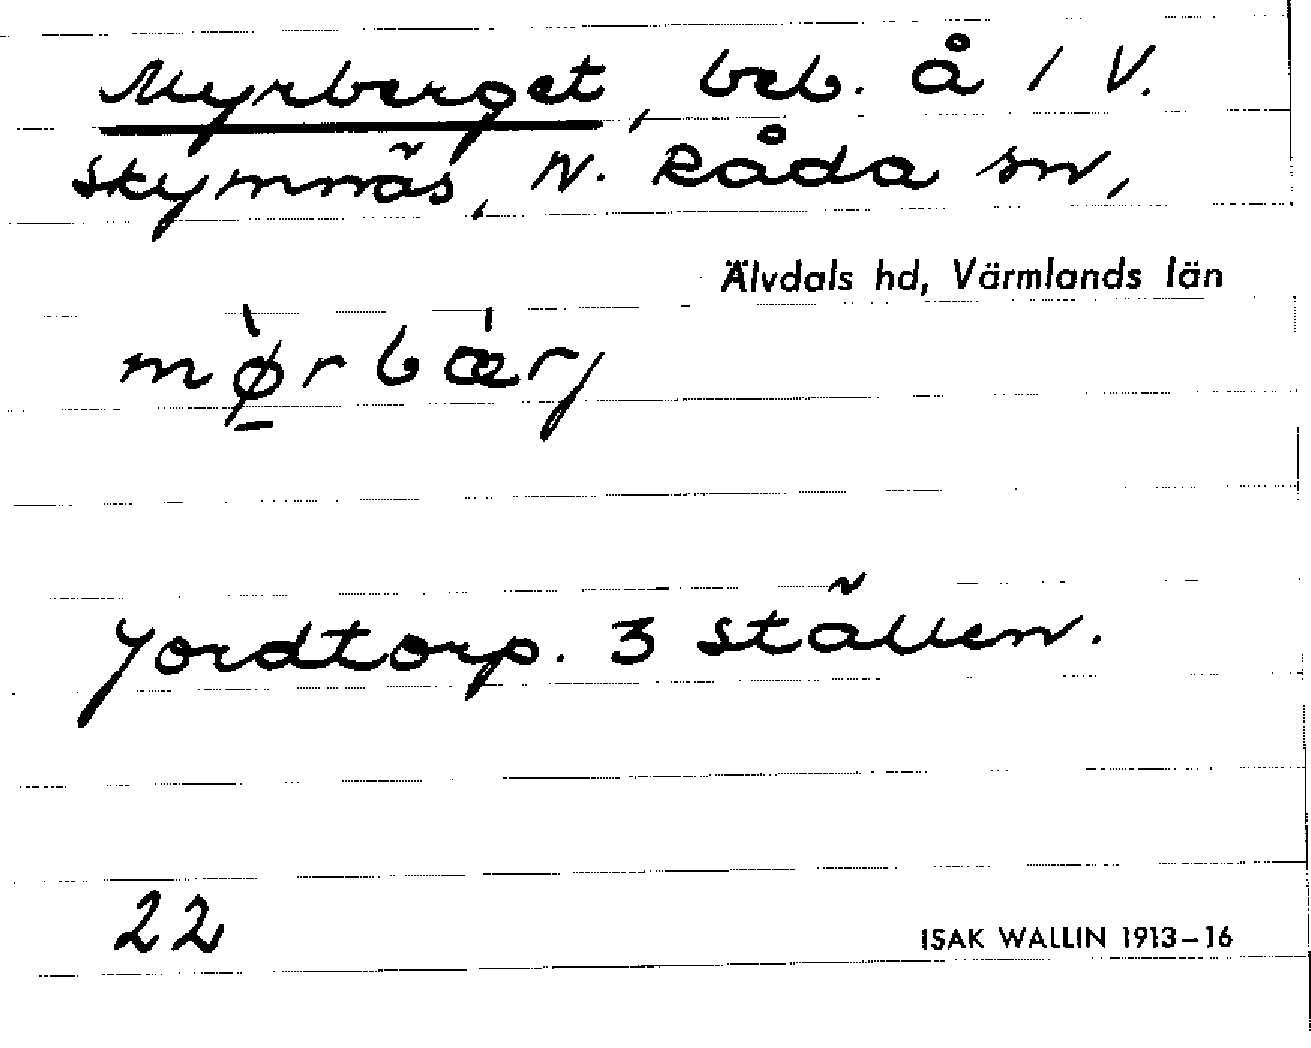 Myrberget, beb. å 1 V.
Skymnäs, N. Råda sn,
Älvdals hd, Värmlands län
mø̠̀rbǽrj
Jordtorp. 3 ställen.
22
ISAK WALLIN 1913–16